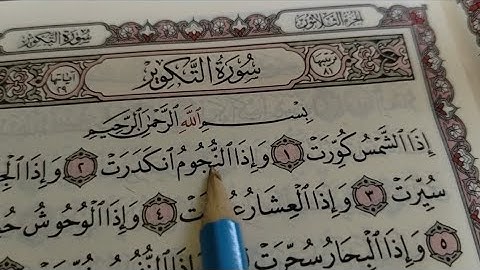 الجزء الثلاثون
سورة التكوير
ترتيبها ٨١
سُورَةُ التَّكْوِيرِ
آياتها ٢٩
بِسْمِ اللَّهِ الرَّحْمَٰنِ الرَّحِيمِ
إِذَا الشَّمْسُ كُوِّرَتْ ١ وَإِذَا النُّجُومُ انْكَدَرَتْ ٢ وَإِذَا
سُيِّرَتْ ٣ وَإِذَا الْعِشَارُ ٤ وَإِذَا الْوُحُوشُ
٥ وَإِذَا الْبِحَارُ سُجِّرَتْ